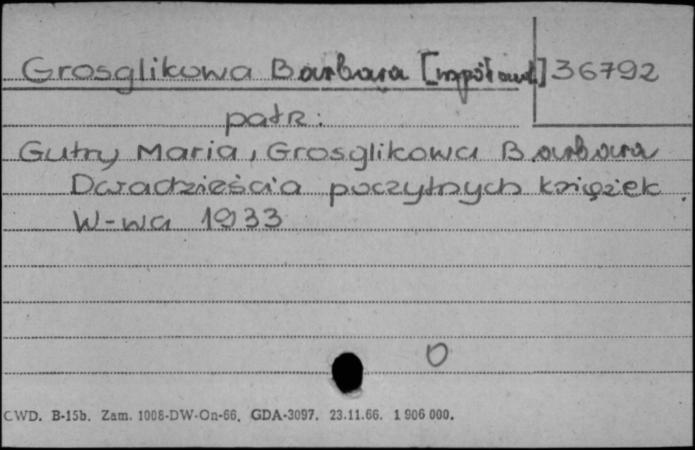 Grosglikowa Barbara [współaut.] 36792
patrz:
Gutry Maria, Grosglikowa Barbara
Dwadzieścia poczytnych książek.
W-wa 1933
0
CWD. B-15b. Zam. 1008-DW-On-66. GDA-3097. 23.11.66. 1 906 000.